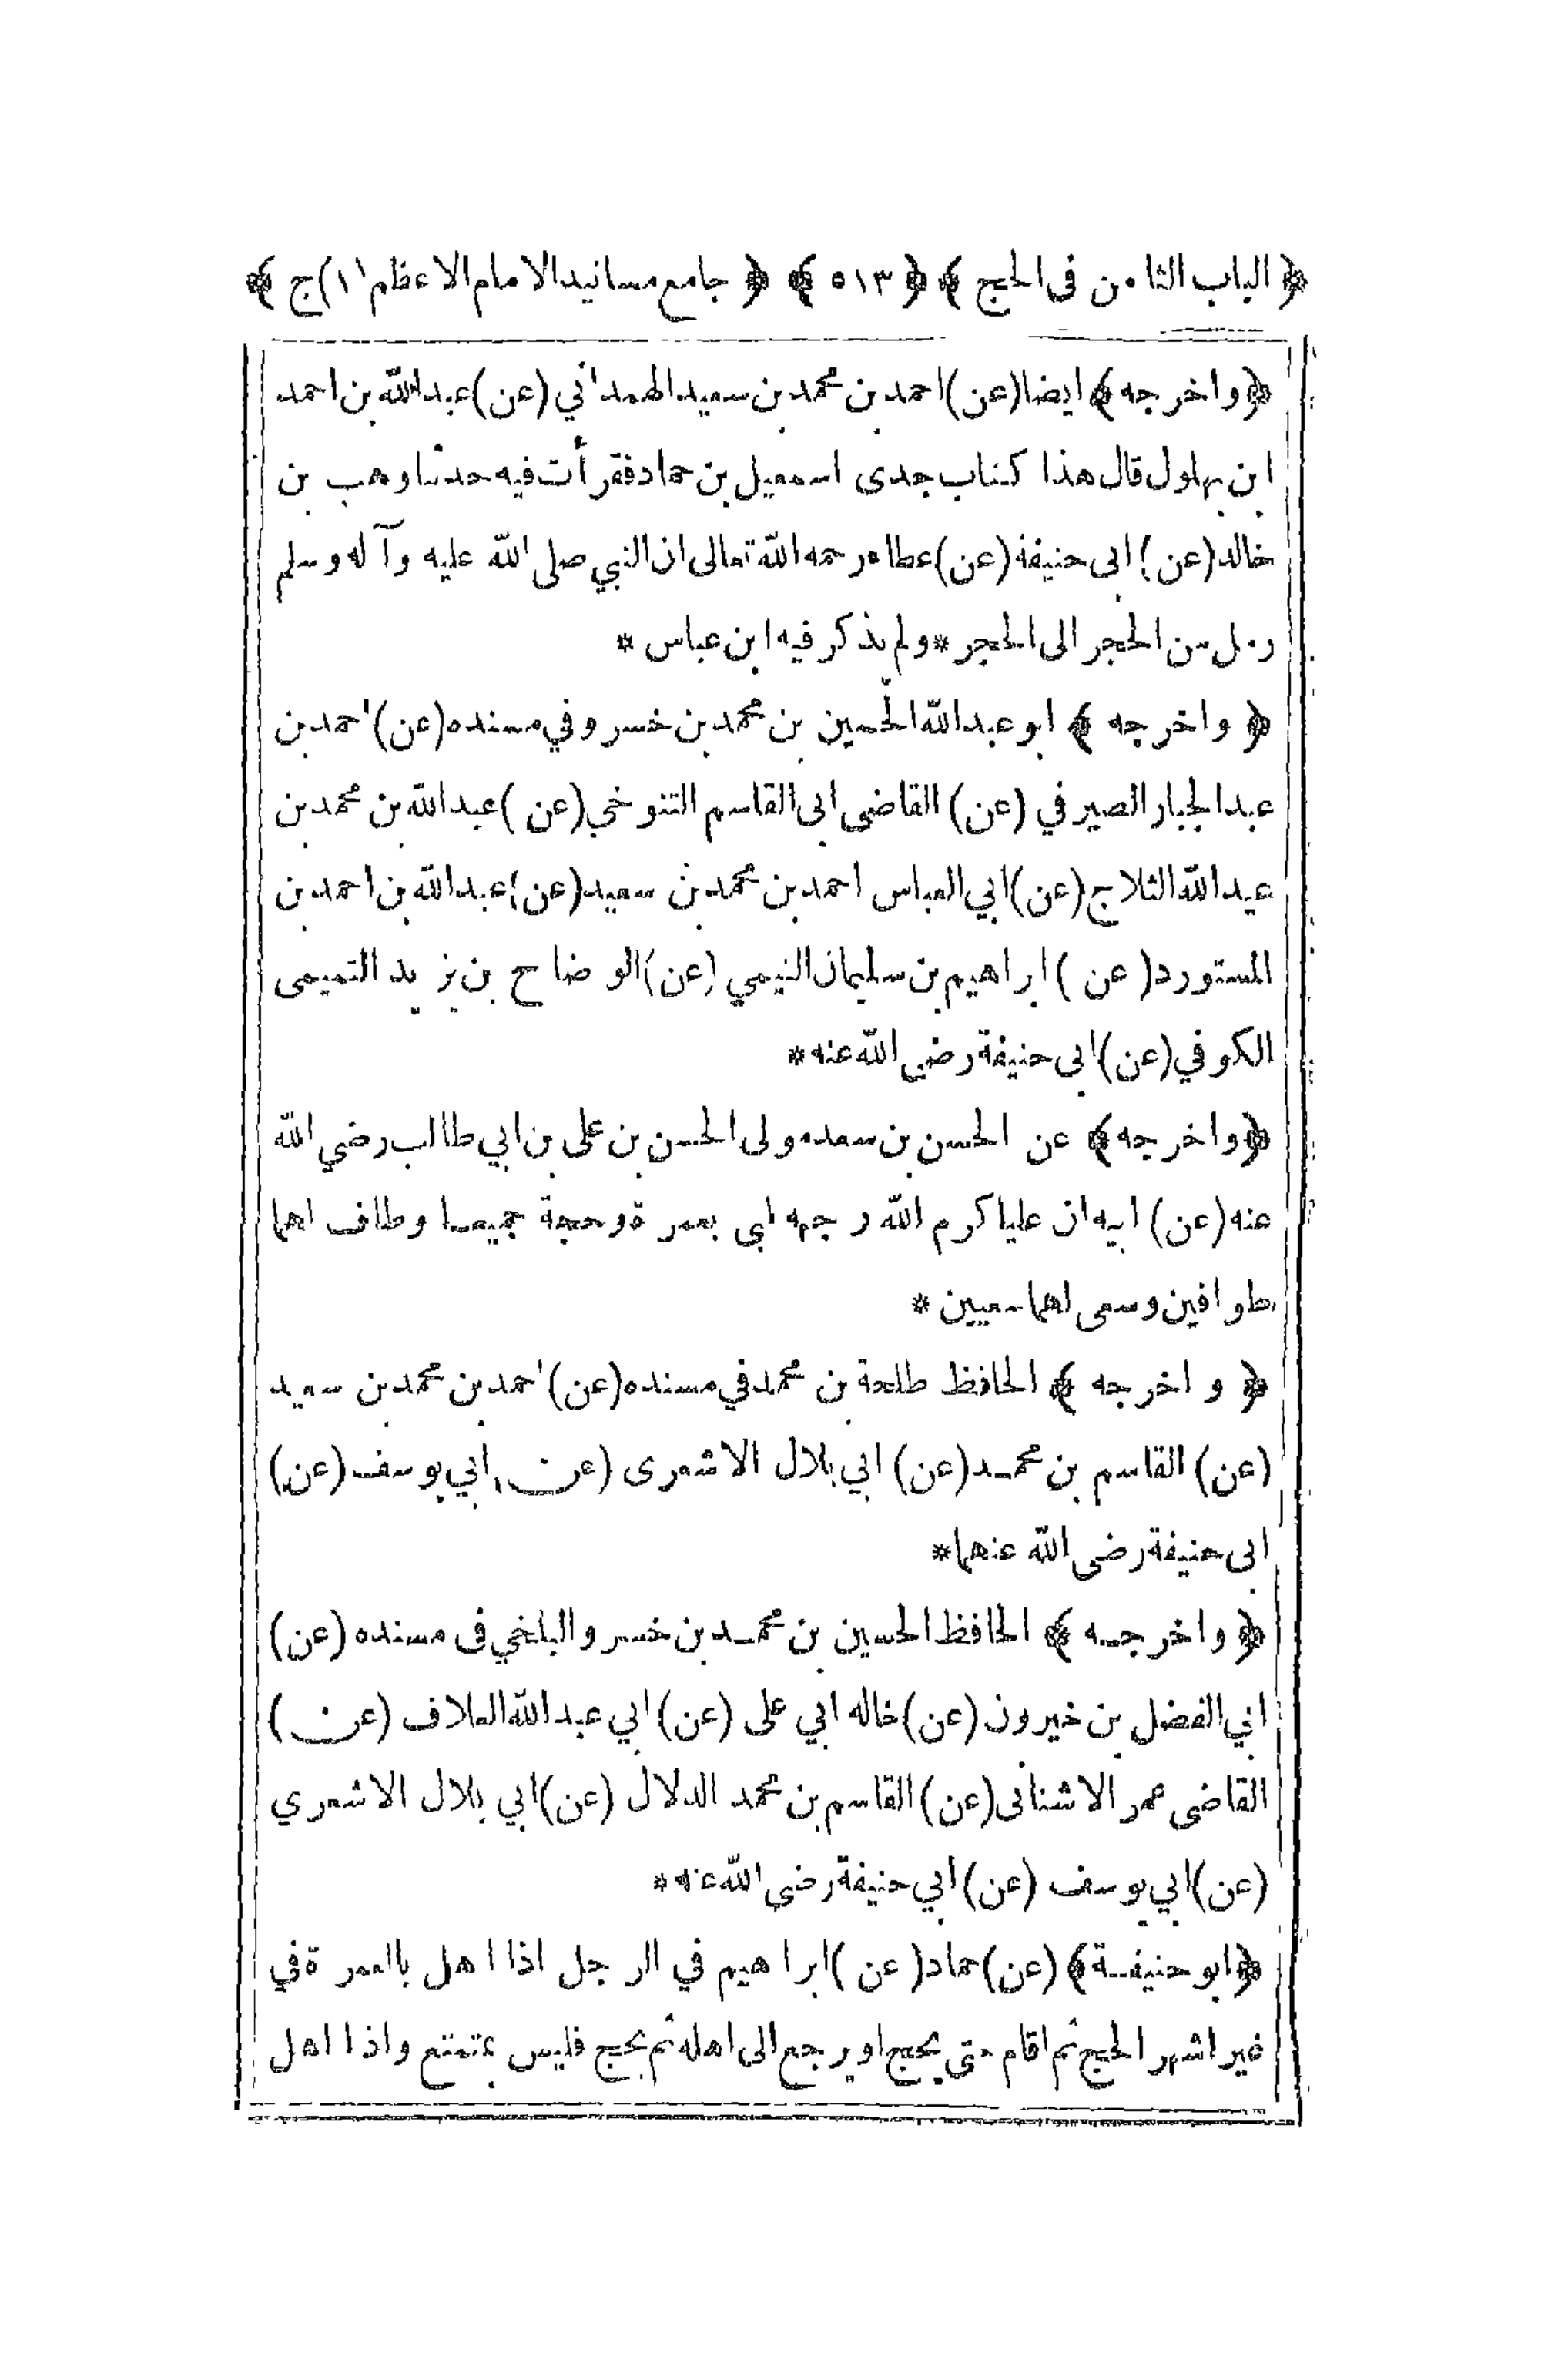 ﴿ الباب الثامن فى الحج ﴾ ﴿ ٥١٣ ﴾ ﴿ جامع مسانيد الامام الاعظم (١) ج ﴾
﴿ واخرجه ﴾ ايضا (عن) احمد بن محمد بن سعيد الهمدانى (عن) عبد الله بن احمد
ابن بهلول قال هذا كتاب جدى اسمعيل بن حماد فقرأت فيه حدثنا وهب بن
خالد (عن) ابى حنيفة (عن) عطاء رحمه الله تعالى ان النبي صلى الله عليه وآله وسلم
رمل من الحجر الى الحجر * ولم يذكر فيه ابن عباس *
﴿ واخرجه ﴾ ابو عبد الله الحسين بن محمد بن خسرو في مسنده (عن) احمد بن
عبد الجبار الصيرفي (عن) القاضى ابى القاسم التنوخي (عن) عبد الله بن محمد بن
عبد الله الثلاج (عن) ابي العباس احمد بن محمد بن سعيد (عن) عبد الله بن احمد بن
المستورد (عن) ابراهيم بن سليمان التيمي (عن) الوضاح بن يزيد التميمى
الكوفي (عن) ابى حنيفة رضي الله عنه *
﴿ واخرجه ﴾ عن الحسن بن سعد مولى الحسن بن على بن ابي طالب رضي الله
عنه (عن) ابيه ان عليا كرم الله وجهه لبى بعمرة وحجة جميعا وطاف لهما
طوافين وسعى لهما سعيين *
﴿ واخرجه ﴾ الحافظ طلحة بن محمد في مسنده (عن) احمد بن محمد بن سعيد
(عن) القاسم بن محمد (عن) ابي بلال الاشعرى (عن) ابي يوسف (عن)
ابى حنيفة رضى الله عنهما *
﴿ واخرجه ﴾ الحافظ الحسين بن محمد بن خسرو البلخي فى مسنده (عن)
ابي الفضل بن خيرون (عن) خاله ابي على (عن) ابي عبد الله العلاف (عن)
القاضى عمر الاشنانى (عن) القاسم بن محمد الدلال (عن) ابي بلال الاشعري
(عن) ابي يوسف (عن) ابي حنيفة رضى الله عنه *
﴿ ابو حنيفة ﴾ (عن) حماد (عن) ابراهيم في الرجل اذا اهل بالعمرة في
غير اشهر الحج ثم اقام حتى يحج او يرجع الى اهله ثم يحج فليس بمتمتع واذا اهل